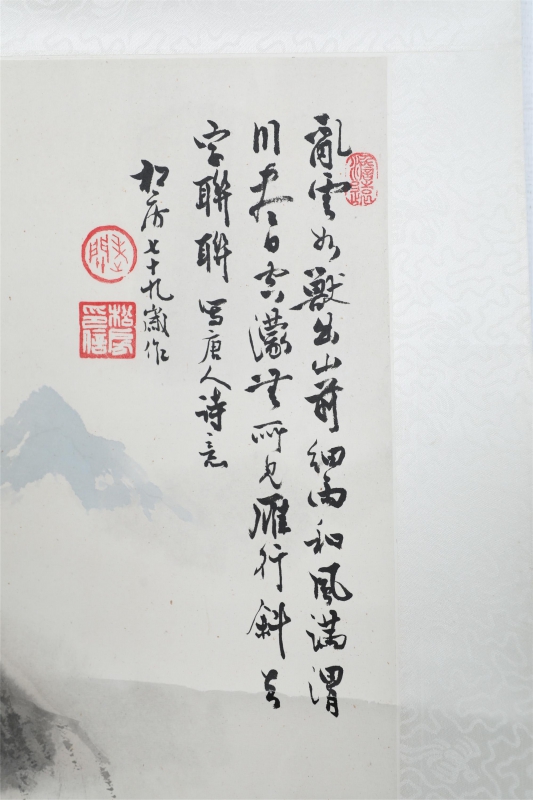 亂雲如獸出山前細雨和風滿渭
川盡日空濛無所見雁行斜去
字聯聯 寫唐人詩意
松房七十九歲作
澹遠